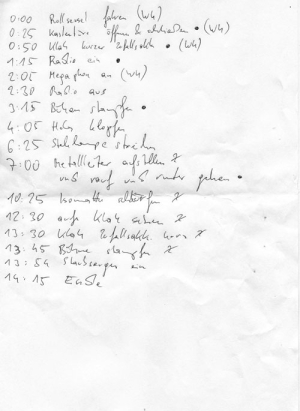 0:00 Rollsessel fahren (WH)
0:25 Kastentüre öffnen & schließen • (WH)
0:50 Klak kurze Zufallsakk. • (WH)
1:15 Radio ein •
2:05 Megaphon an (WH)
2:30 Radio aus
3:15 Bühne stampfen •
4:05 Holz klopfen
6:25 streichen
7:00 Metalleiter aufstellen
und rauf und runter gehen •
10:25
12:30 auf Klak
13:30 Klak Zufallsakk.
13:45 Bühne stampfen
13:54 Staubsauger ein
14:15 Ende